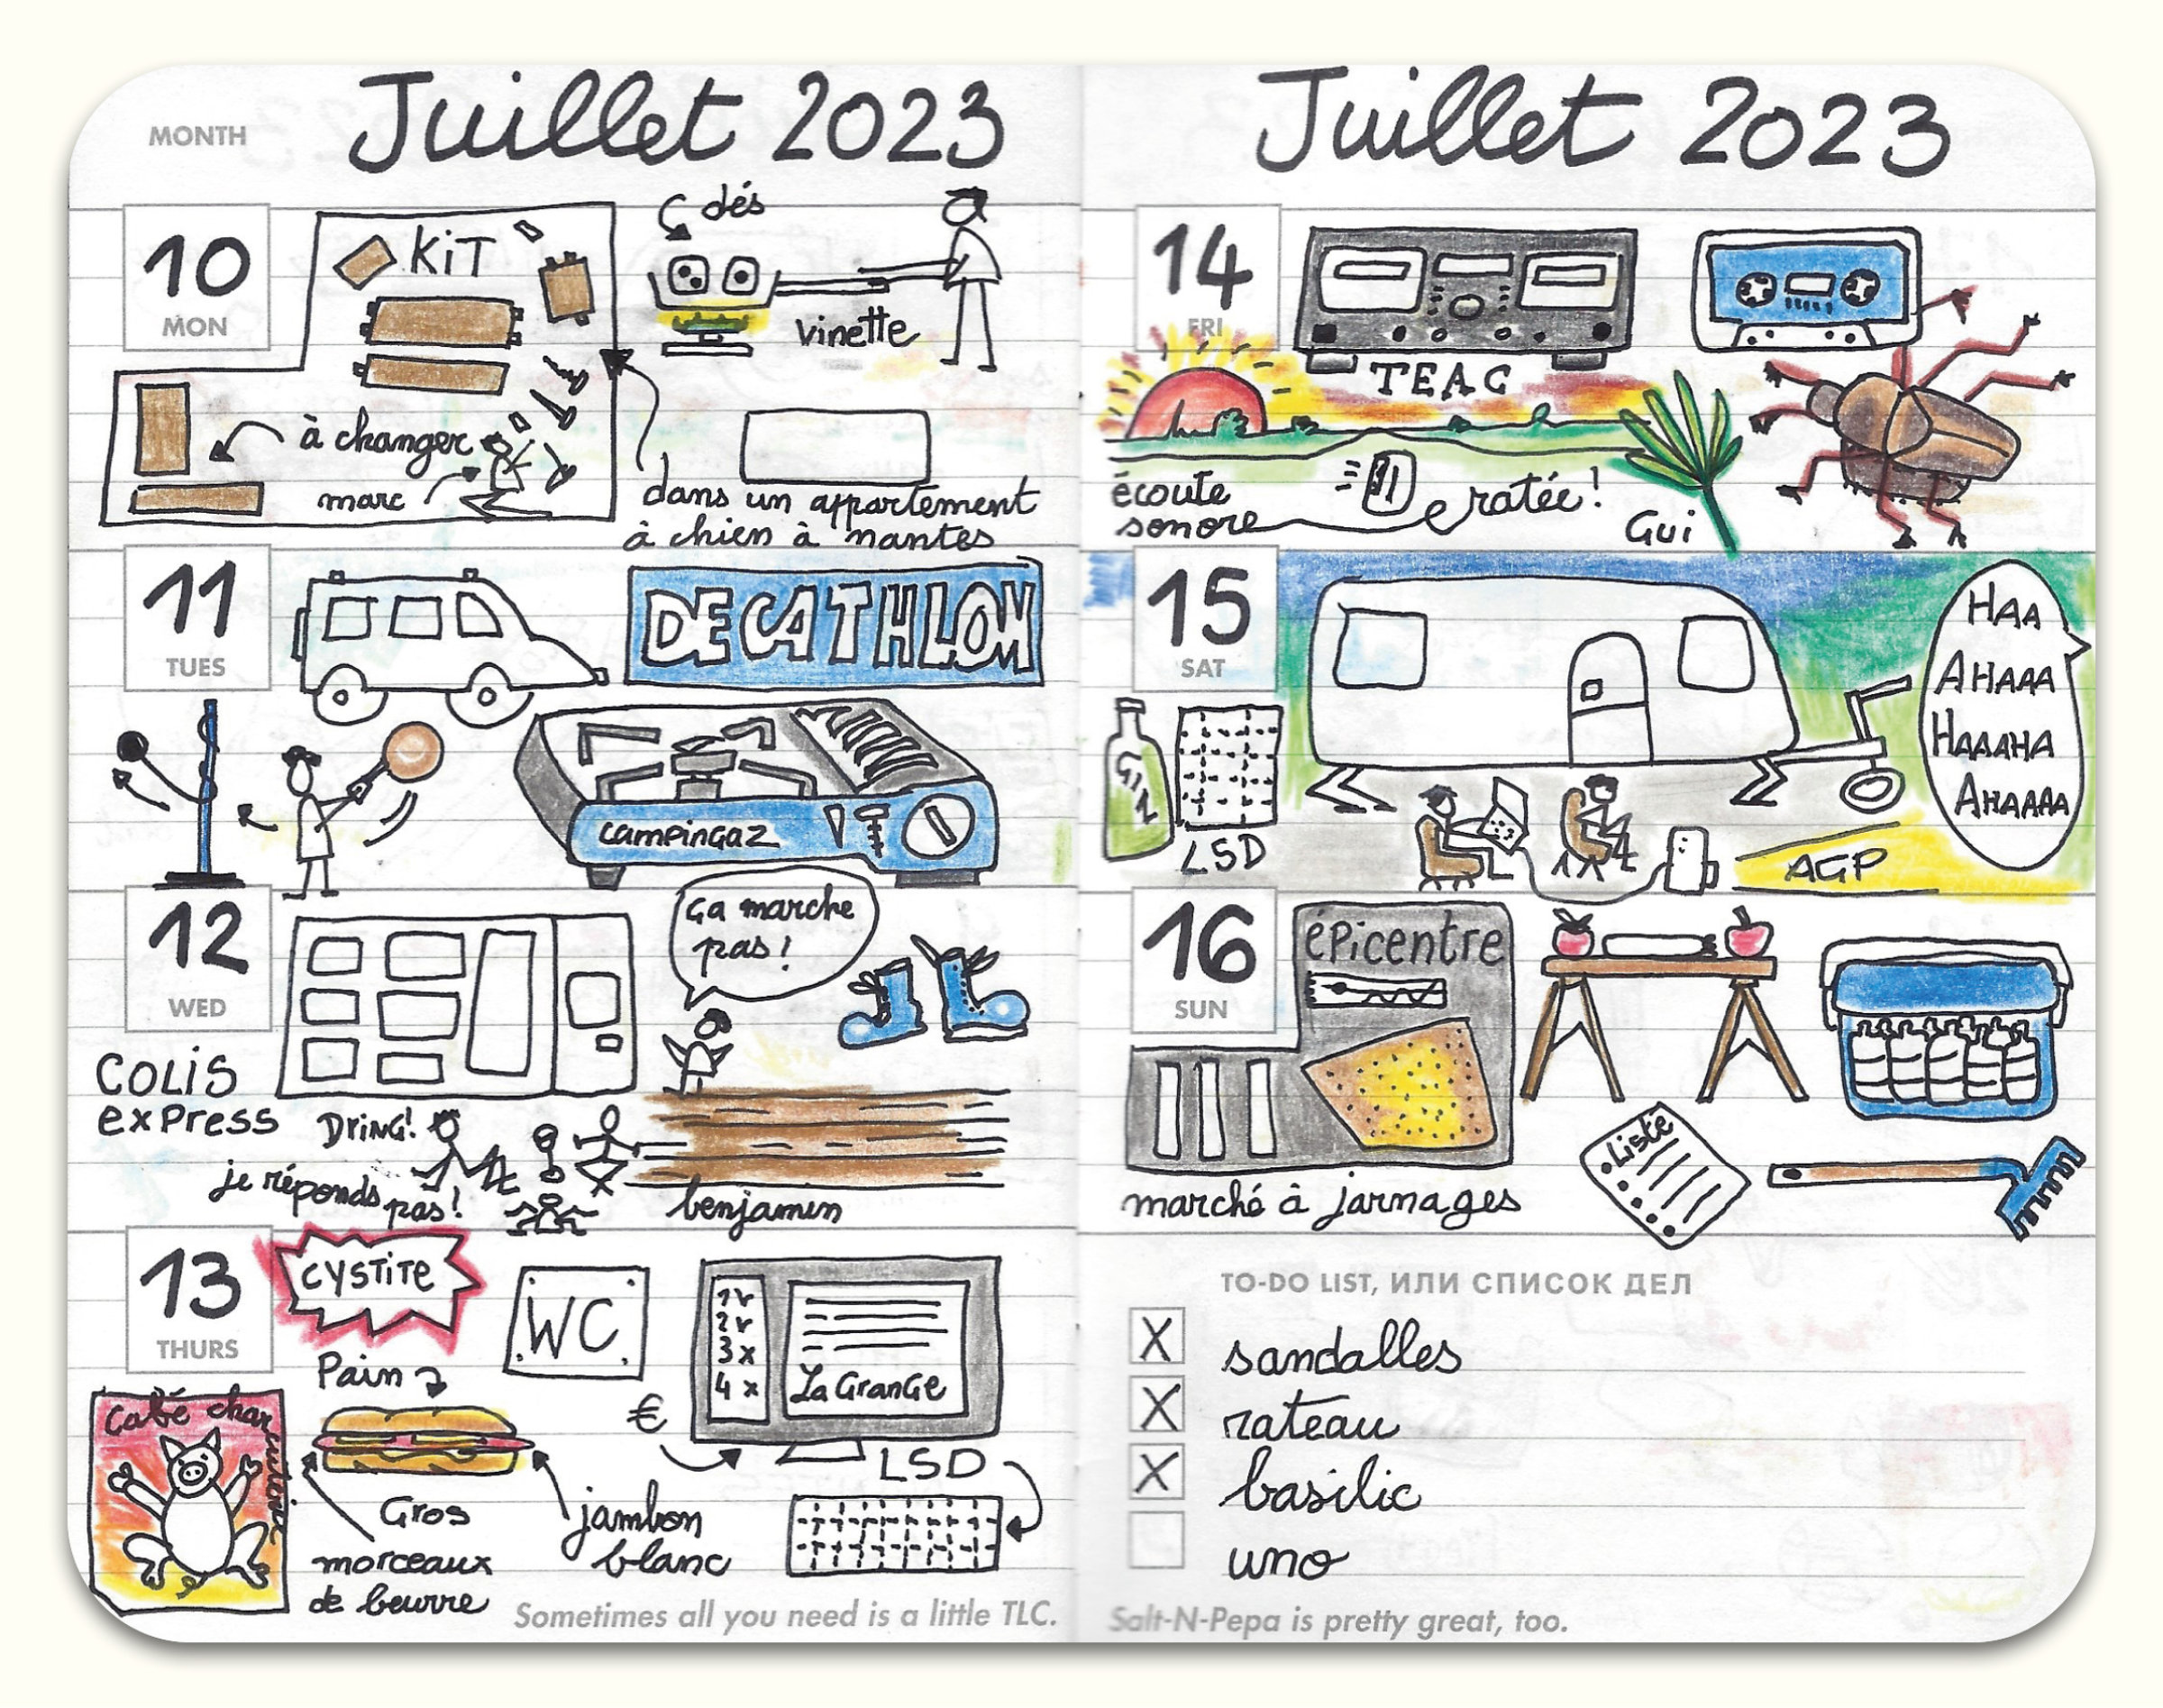 MONTH
Juillet 2023
10
MON
KiT
à changer
marc
dés
vinette
dans un appartement
à chien à nantes
11
TUES
DECATHLON
campinGaz
12
WED
COLiS
exPress
ça marche
pas!
DriNG!
je réponds
pas!
benjamin
13
THURS
CYSTiTE
WC
1v
2v
3x
4x
La GranGe
€
LSD
Pain
Café charcuterie
Gros
morceaux
de beurre
jambon
blanc
Sometimes all you need is a little TLC.
Juillet 2023
14
FRI
TEAC
écoute
sonore
ratée!
Gui
15
SAT
GIN
LSD
HAA
AHAAA
HAAAHA
AHAAAA
AGP
16
SUN
éPicentre
marché à jarnages
Liste
TO-DO LIST, ИЛИ СПИСОК ДЕЛ
X sandalles
X rateau
X basilic
uno
Salt-N-Pepa is pretty great, too.